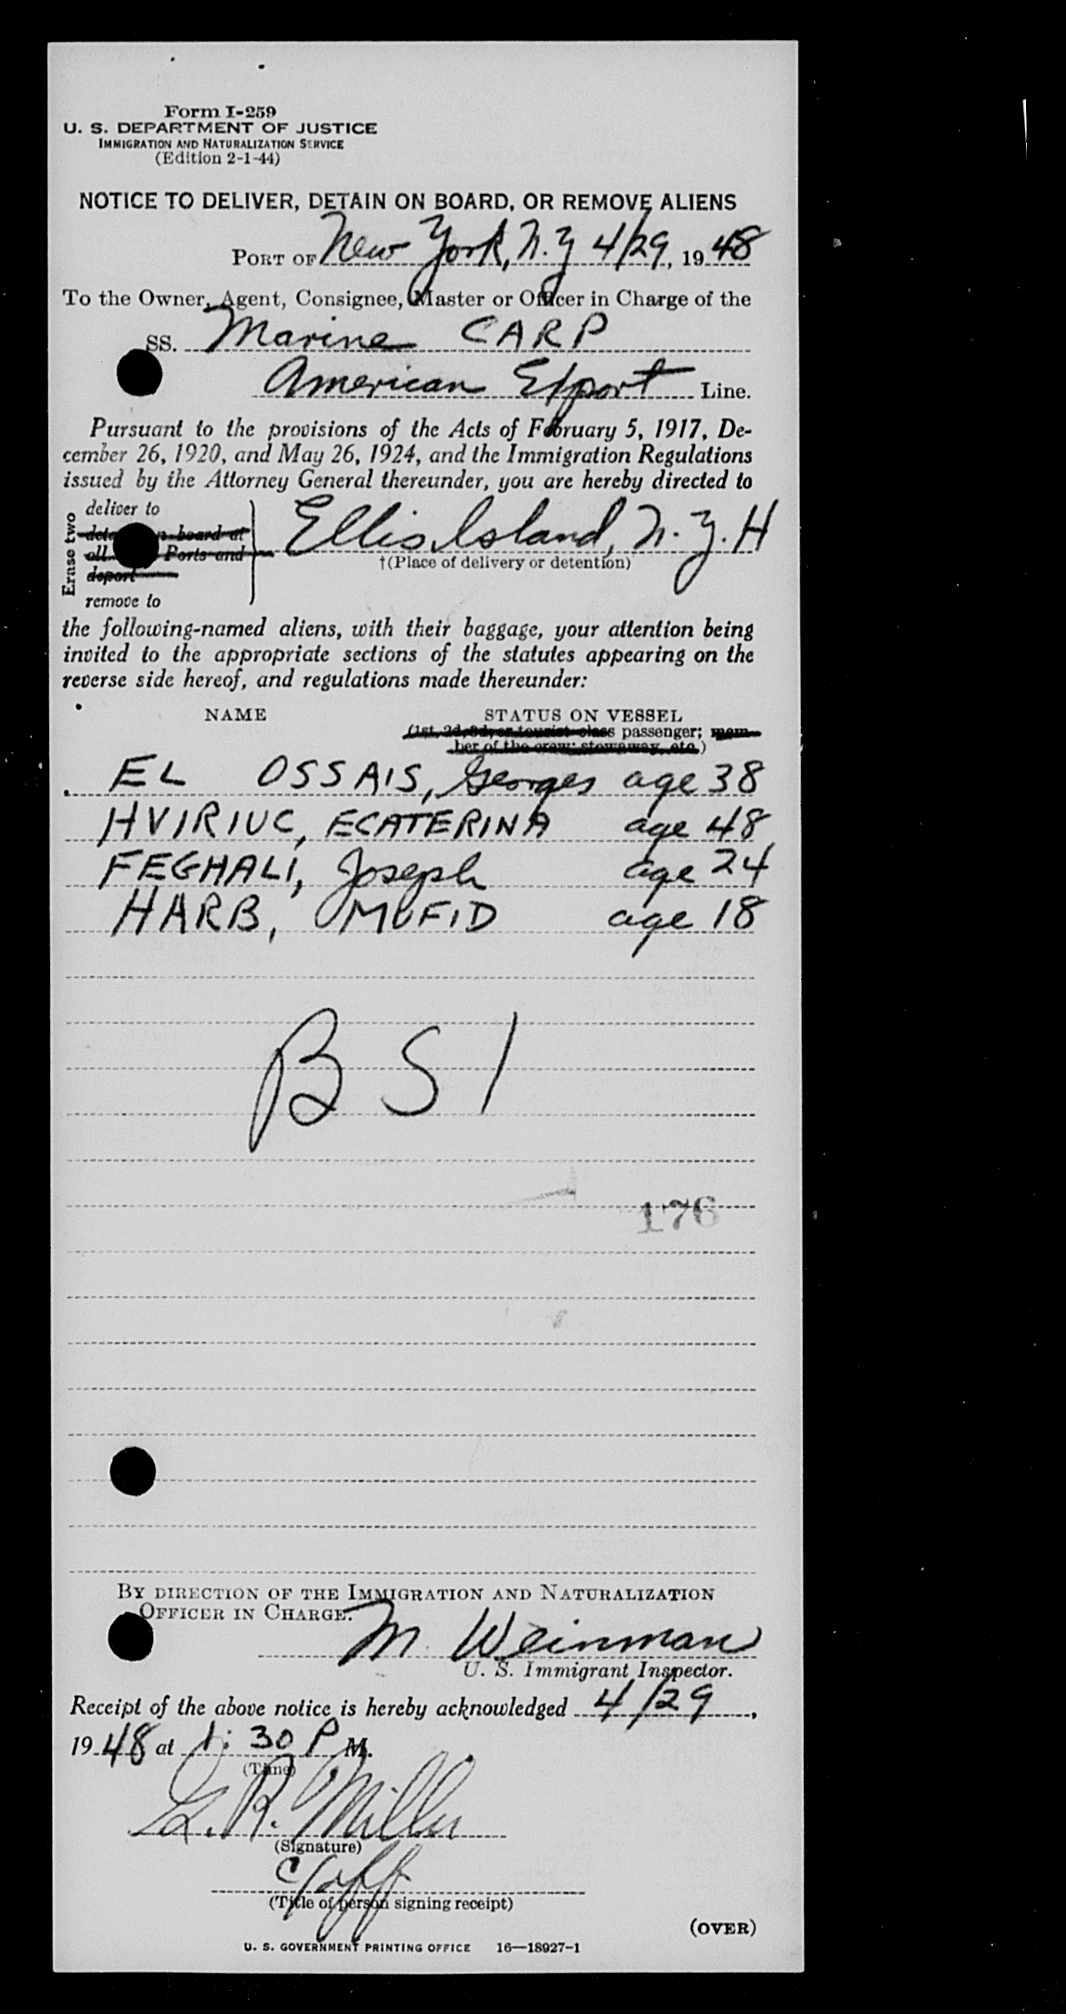 Form I-259
U. S. DEPARTMENT OF JUSTICE
IMMIGRATION AND NATURALIZATION SERVICE
(Edition 2-1-44)
NOTICE TO DELIVER, DETAIN ON BOARD, OR REMOVE ALIENS
PORT OF New York, N.Y 4/29, 1948
To the Owner, Agent, Consignee, Master or Officer in Charge of the
SS. Marine CARP
American Export Line.
Pursuant to the provisions of the Acts of February 5, 1917, De-
cember 26, 1920, and May 26, 1924, and the Immigration Regulations
issued by the Attorney General thereunder, you are hereby directed to
Erase two
deliver to
board at
all Ports and
deport
remove to
Ellis Island, N.Y. H
†(Place of delivery or detention)
the following-named aliens, with their baggage, your attention being
invited to the appropriate sections of the statutes appearing on the
reverse side hereof, and regulations made thereunder:
NAME STATUS ON VESSEL
(1st, 2d, 3d, or tourist class passenger; mem-
ber of the crew; stowaway, etc.)
EL OSSAIS, Georges age 38
HVIRIUC, ECATERINA age 48
FEGHALI, Joseph age 24
HARB, MUFID age 18
BSI
176
BY DIRECTION OF THE IMMIGRATION AND NATURALIZATION
OFFICER IN CHARGE.
M. Weinman
U. S. Immigrant Inspector.
Receipt of the above notice is hereby acknowledged 4/29,
1948 at 1:30 P M.
(Time)
G. R. Miller
(Signature)
C/off
(Title of person signing receipt)
(OVER)
U. S. GOVERNMENT PRINTING OFFICE 16—18927-1